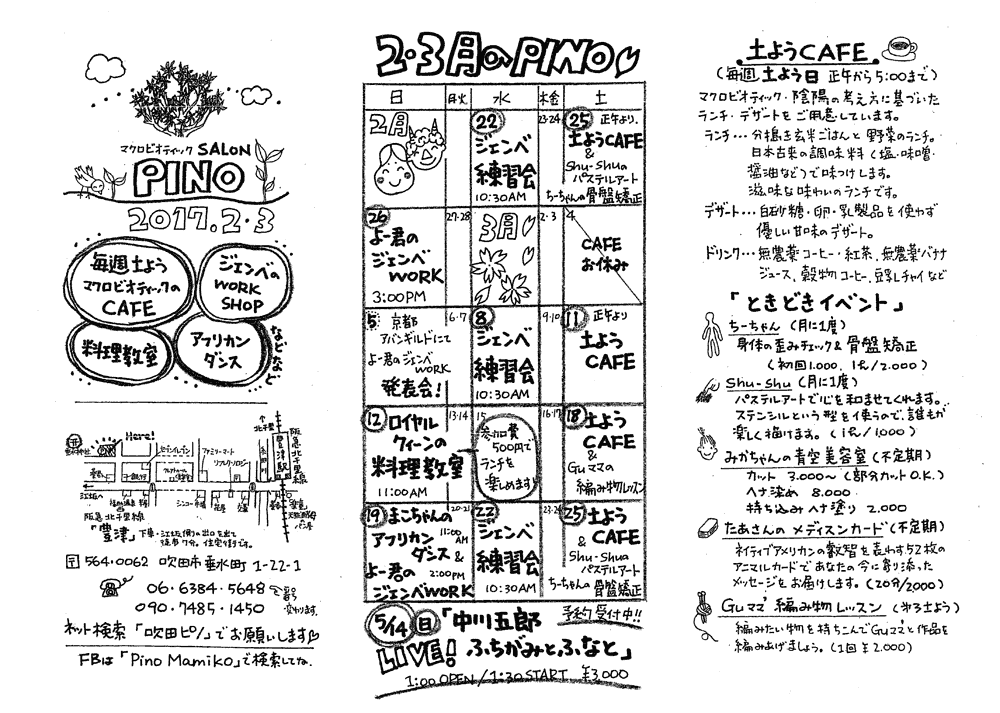 マクロビオティック SALON
PINO
2017.2・3
毎週土よう
マクロビオティックの
CAFE
ジェンベの
WORK
SHOP
料理教室
アフリカン
ダンス
などなど
Here!
セブンイレブン
ファミリーマート
北千里
阪急北千里線
豊津駅
江坂へ
阪急北千里線
「豊津」下車・江坂側の出口を出て
徒歩7分。住宅街です。
〒564.0062 吹田市垂水町1-22-1
06・6384・5648
090・7485・1450
ネット検索「吹田ピノ」でお願いします
FBは「Pino Mamiko」で検索してね.
2・3月のPINO
日 月火 水 木金 土
2月
22
ジェンベ
練習会
10:30AM
23・24
25 正午より.
土ようCAFE
&
Shu-Shuの
パステルアート
ちーちゃんの骨盤矯正
26
よー君の
ジェンベ
WORK
3:00PM
27・28
3月
2・3
4
CAFE
お休み
5 京都
アバンギルドにて
よー君のジェンベ
WORK
発表会!
6・7
8
ジェンベ
練習会
10:30AM
9・10
11 正午より
土よう
CAFE
12 ロイヤル
クィーンの
料理教室
11:00AM
13・14
15
参加費
500円で
ランチを
楽しめます!
16・17
18 土よう
CAFE
&
Guママの
編み物レッスン
19 まこちゃんの
アフリカン 11:00 AM
ダンス &
よー君の 2:00PM
ジェンベWORK
20・21
22
ジェンベ
練習会
10:30AM
23・24
25 土よう
& CAFE
Shu-Shuの
パステルアート
ちーちゃんの骨盤矯正
5/14 日 「中川五郎 予約受付中!!
LIVE! ふちがみとふなと」
1:00 OPEN / 1:30 START ¥3,000
土ようCAFE
(毎週土よう日 正午から5:00まで)
マクロビオティック・陰陽の考え方に基づいた
ランチ・デザートをご用意しています。
ランチ・・・分搗き玄米ごはんと野菜のランチ。
日本古来の調味料(塩・味噌・
醤油など)で味つけします。
滋味な味わいのランチです。
デザート・・・白砂糖・卵・乳製品を使わず
優しい甘味のデザート。
ドリンク・・・無農薬コーヒー・紅茶、無農薬バナナ
ジュース、穀物コーヒー、豆乳チャイなど
「ときどきイベント」
ちーちゃん (月に1度)
身体の歪みチェック&骨盤矯正
(初回1.000、1元/2.000)
Shu-Shu (月に1度)
パステルアートで心を和ませてくれます。
ステンシルという型を使うので、誰もが
楽しく描けます。(1元/1,000)
みかちゃんの青空美容室(不定期)
カット 3.000~(部分カットO.K.)
ヘナ染め 8.000
持ち込みヘナ塗り 2.000
たあさんのメディスンカード(不定期)
ネイティブアメリカンの叡智を表わす52枚の
アニマルカードであなたの今に寄り添った
メッセージをお届けします。(20分/2000)
Guママ 編み物レッスン (第3土よう)
編みたい物を持ちこんでGuママと作品を
編みあげましょう。(1回¥2.000)